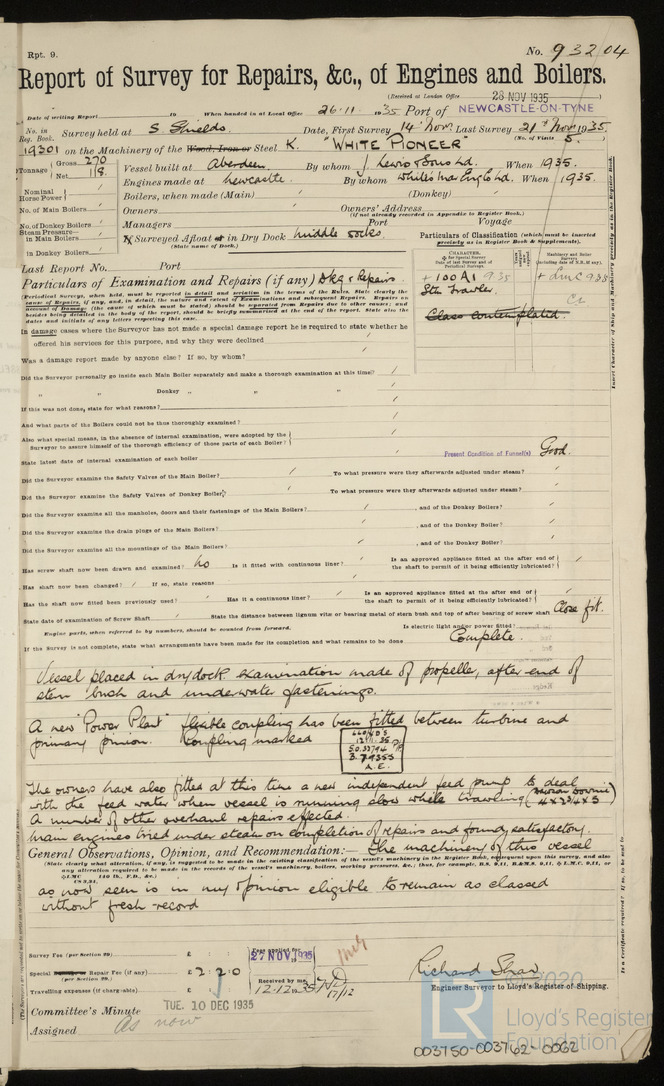 Rpt. 9.
No. 93204
Report of Survey for Repairs, &c., of Engines and Boilers.
(Received at London Office 28 NOV 1935)
Date of writing Report 19 When handed in at Local Office 26·11· 1935 Port of NEWCASTLE-ON-TYNE
No. in Reg. Book. Survey held at S Shields. Date, First Survey 14th Nov. Last Survey 21st Nov 1935.
(No. of Visits 5.)
19301 on the Machinery of the Wood, Iron or Steel K. "WHITE PIONEER"
Tonnage Gross 270 Net 118
Vessel built at Aberdeen. By whom J. Lewis & Sons Ld. When 1935.
Engines made at Newcastle. By whom White's Mar Eng Co Ld. When 1935.
Nominal Horse Power
Boilers, when made (Main) (Donkey)
No. of Main Boilers
Owners Owners' Address
(if not already recorded in Appendix to Register Book.)
No. of Donkey Boilers
Managers Port Voyage
Steam Pressure— in Main Boilers
in Donkey Boilers
If Surveyed Afloat or in Dry Dock Middle Docks.
(State name of Dock.)
Particulars of Classification (which must be inserted precisely as in Register Book & Supplements).
CHARACTER. Machinery and Boiler Surveys
+ 100A1 9.35 + LMC 9.35
Stm Trawler. CL
Class contemplated.
Last Report No. Port
Particulars of Examination and Repairs (if any) Dkg & Repairs.
(Periodical Surveys, when held, must be reported in detail and seriatim in the terms of the Rules. State clearly the
cause of Repairs, if any, and, in detail, the nature and extent of Examinations and subsequent Repairs. Repairs on
account of Damage (the cause of which must be stated) should be separated from Repairs due to other causes; and
besides being detailed in the body of the report, should be briefly summarised at the end of the report. State also the
dates and initials of any letters respecting this case.)
In damage cases where the Surveyor has not made a special damage report he is required to state whether he
offered his services for this purpose, and why they were declined
Was a damage report made by anyone else? If so, by whom?
Did the Surveyor personally go inside each Main Boiler separately and make a thorough examination at this time?
" " Donkey " " "
If this was not done, state for what reasons?
And what parts of the Boilers could not be thus thoroughly examined?
Also what special means, in the absence of internal examination, were adopted by the
Surveyor to assure himself of the thorough efficiency of those parts of each Boiler?
State latest date of internal examination of each boiler
Present Condition of Funnel(s) Good.
Did the Surveyor examine the Safety Valves of the Main Boiler? To what pressure were they afterwards adjusted under steam?
Did the Surveyor examine the Safety Valves of Donkey Boiler? To what pressure were they afterwards adjusted under steam?
Did the Surveyor examine all the manholes, doors and their fastenings of the Main Boilers? , and of the Donkey Boiler?
Did the Surveyor examine the drain plugs of the Main Boilers? , and of the Donkey Boiler?
Did the Surveyor examine all the mountings of the Main Boilers? , and of the Donkey Boiler?
Has screw shaft now been drawn and examined? No Is it fitted with continuous liner? Is an approved appliance fitted at the after end of the shaft to permit of it being efficiently lubricated?
Has shaft now been changed? If so, state reasons
Has the shaft now fitted been previously used? Has it a continuous liner? Is an approved appliance fitted at the after end of the shaft to permit of it being efficiently lubricated?
State date of examination of Screw Shaft State the distance between lignum vitæ or bearing metal of stern bush and top of after bearing of screw shaft Close fit.
Engine parts, when referred to by numbers, should be counted from forward. Is electric light and/or power fitted?
If the Survey is not complete, state what arrangements have been made for its completion and what remains to be done Complete.
Vessel placed in drydock examination made of propeller, after end of
stern bush and underwater fastenings.
A new "Power Plant" flexible coupling has been fitted between turbine and
primary pinion. Coupling marked
A.E.
The owners have also fitted at this time a new independent feed pump to deal
with the feed water when vessel is running slow while trawling
A number of other overhaul repairs effected.
Main engines tried under steam on completion of repairs and found satisfactory.
General Observations, Opinion, and Recommendation:— The machinery of this vessel
(State clearly what alteration, if any, is suggested to be made in the existing classification of the vessel's machinery in the Register Book, consequent upon this survey, and also
as now seen is in my opinion eligible to remain as classed
without fresh record
Survey Fee (per Section 29) £ : :
Fees applied for 27 NOV 1935
Special Repair Fee (if any) (per Section 29.) £ 2 : 2 : 0
Travelling expenses (if chargeable) £ : :
Received by me, 12.12.1935
17/12
Richard Shaw
Engineer Surveyor to Lloyd's Register of Shipping.
Committee's Minute TUE. 10 DEC 1935
Assigned As now
© 2020
LR
Lloyd's Register
Foundation
003750-003762-0062